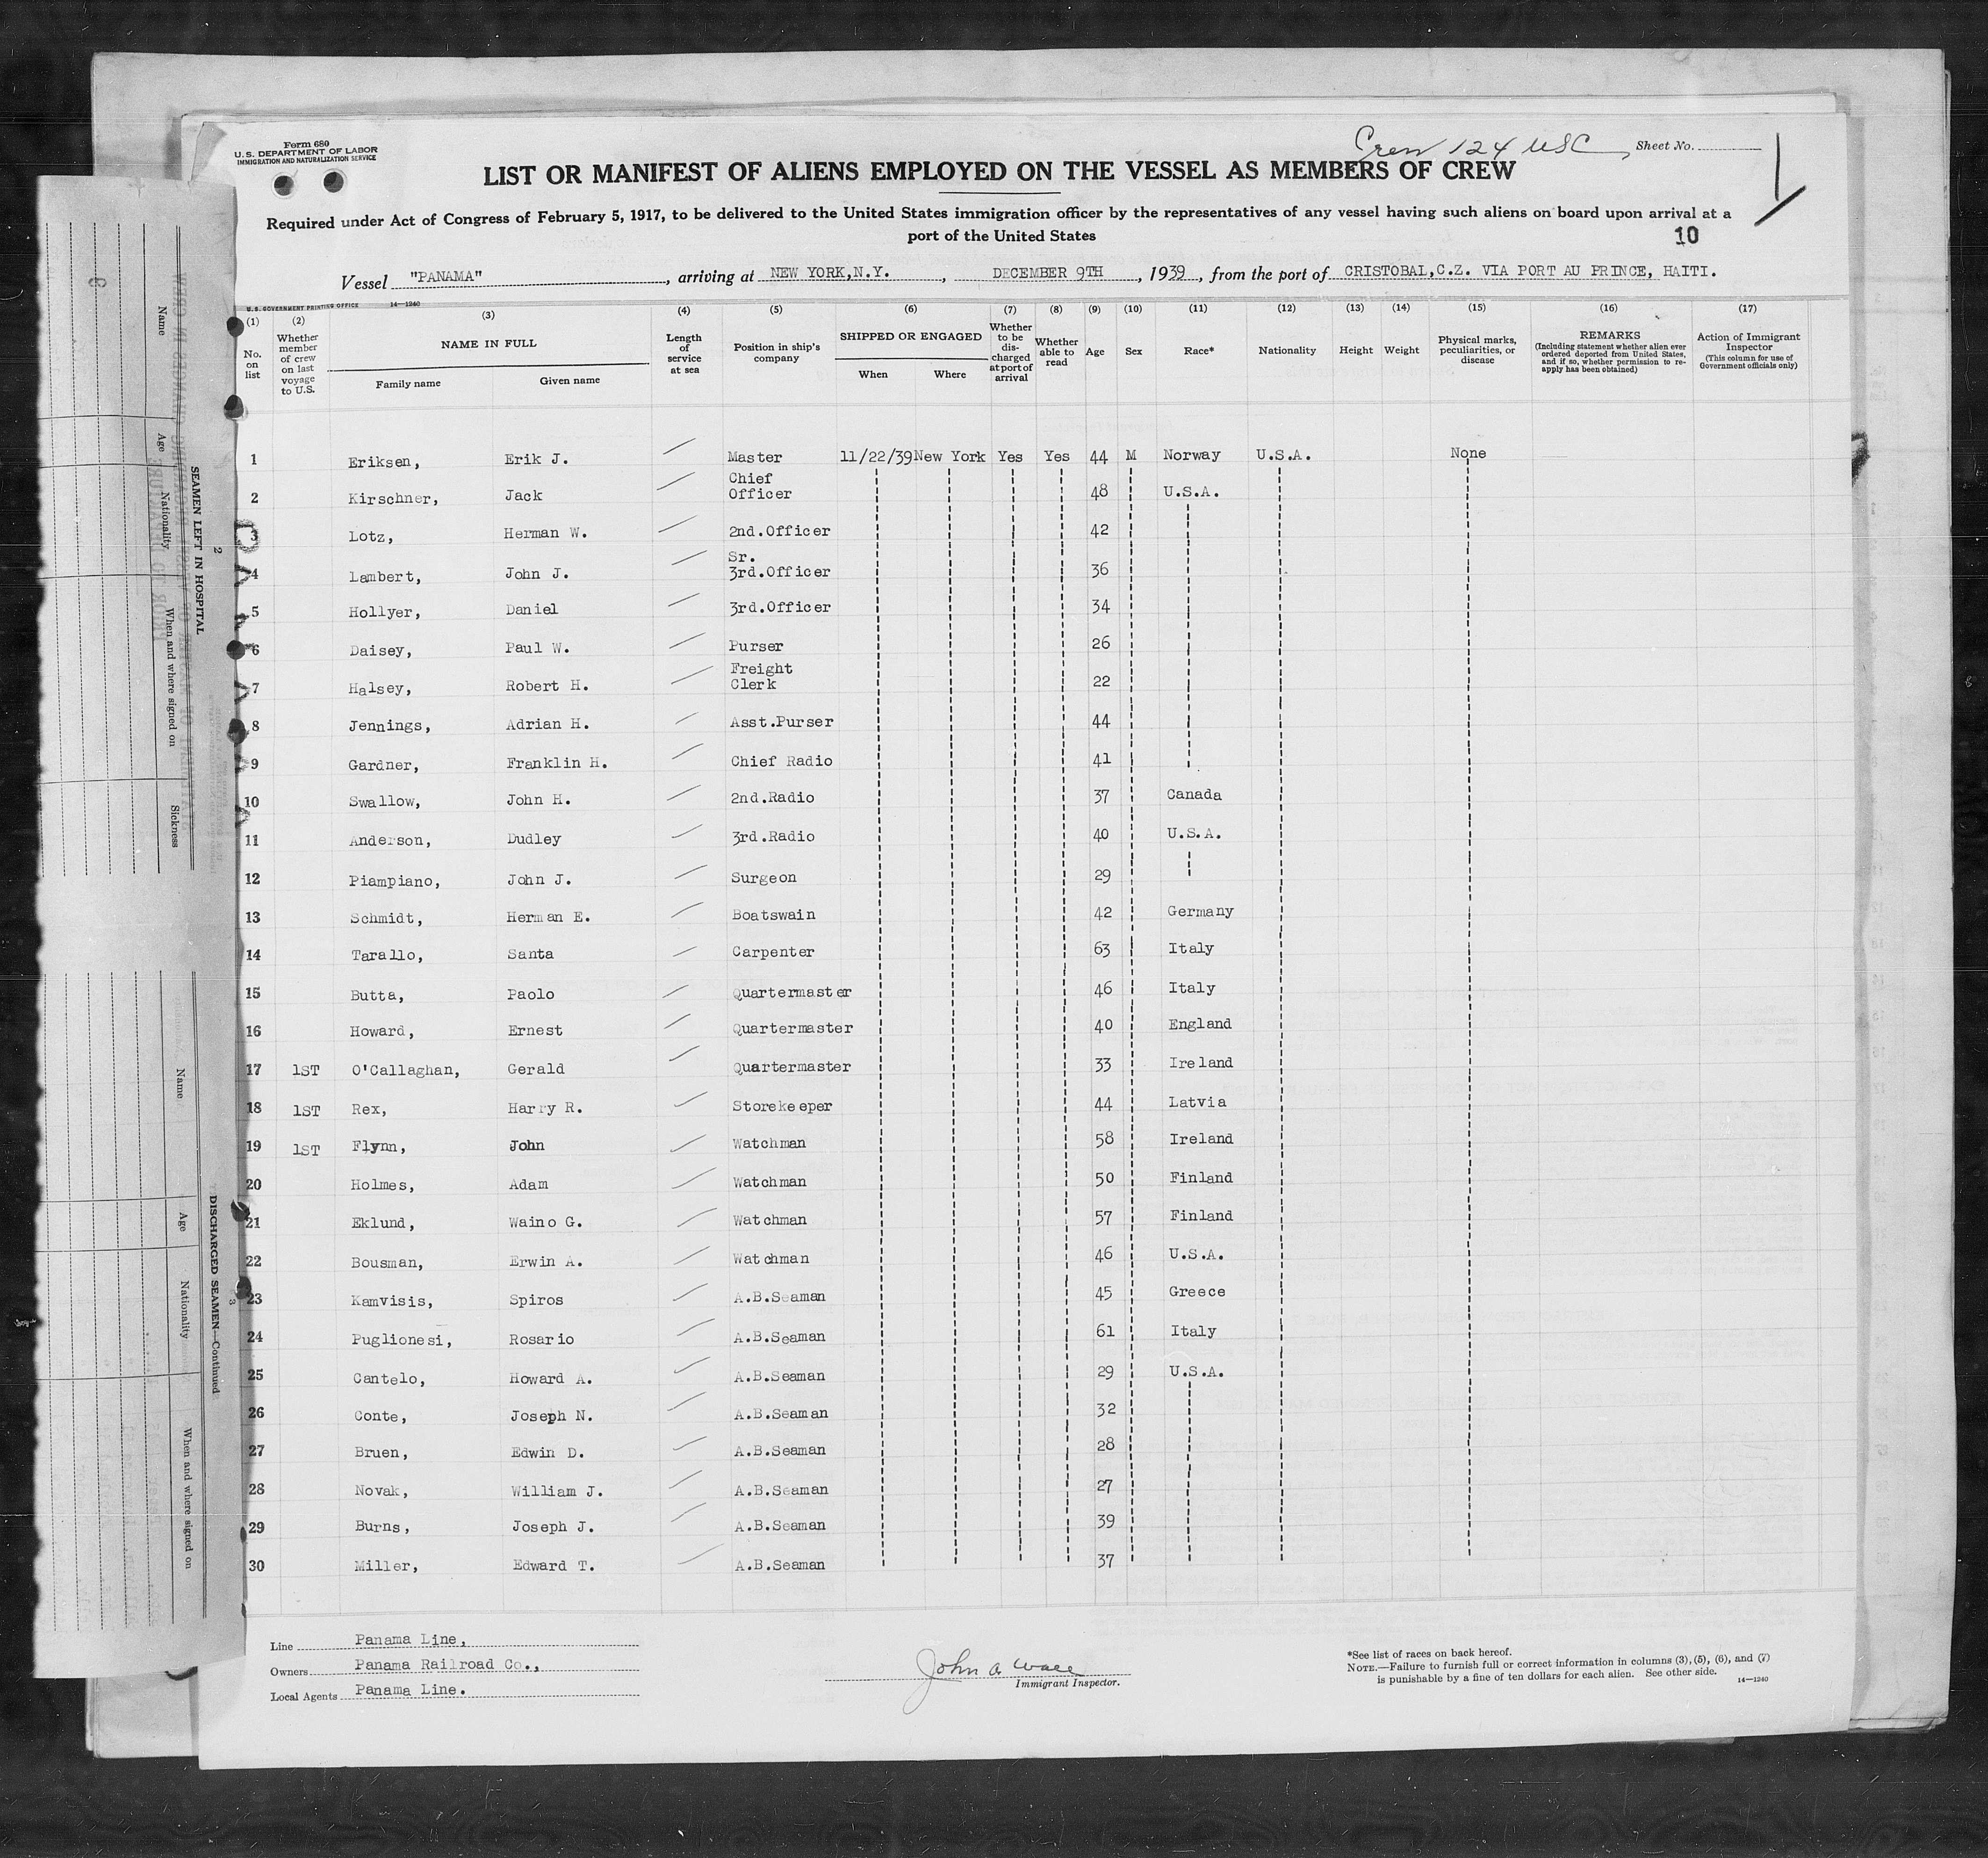 Form 680
U.S. DEPARTMENT OF LABOR
IMMIGRATION AND NATURALIZATION SERVICE
Crew 124 USC
Sheet No.
1
LIST OR MANIFEST OF ALIENS EMPLOYED ON THE VESSEL AS MEMBERS OF CREW
Required under Act of Congress of February 5, 1917, to be delivered to the United States immigration officer by the representatives of any vessel having such aliens on board upon arrival at a
port of the United States
10
Vessel "PANAMA", arriving at NEW YORK,N.Y., DECEMBER 9TH, 1939, from the port of CRISTOBAL,C.Z. VIA PORT AU PRINCE, HAITI.
U.S. GOVERNMENT PRINTING OFFICE 14—1240
(1) (2) (3) (4) (5) (6) (7) (8) (9) (10) (11) (12) (13) (14) (15) (16) (17)
No. on list
Whether member of crew on last voyage to U.S.
NAME IN FULL
Family name Given name
Length of service at sea
Position in ship's company
SHIPPED OR ENGAGED
When Where
Whether to be discharged at port of arrival
Whether able to read
Age
Sex
Race*
Nationality
Height
Weight
Physical marks, peculiarities, or disease
REMARKS
(Including statement whether alien ever ordered deported from United States, and if so, whether permission to re-apply has been obtained)
Action of Immigrant Inspector
(This column for use of Government officials only)
1 Eriksen, Erik J. Master 11/22/39 New York Yes Yes 44 M Norway U.S.A. None
2 Kirschner, Jack Chief Officer 48 U.S.A.
3 Lotz, Herman W. 2nd.Officer 42
4 Lambert, John J. Sr. 3rd.Officer 36
5 Hollyer, Daniel 3rd.Officer 34
6 Daisey, Paul W. Purser 26
7 Halsey, Robert H. Freight Clerk 22
8 Jennings, Adrian H. Asst.Purser 44
9 Gardner, Franklin H. Chief Radio 41
10 Swallow, John H. 2nd.Radio 37 Canada
11 Anderson, Dudley 3rd.Radio 40 U.S.A.
12 Piampiano, John J. Surgeon 29
13 Schmidt, Herman E. Boatswain 42 Germany
14 Tarallo, Santa Carpenter 63 Italy
15 Butta, Paolo Quartermaster 46 Italy
16 Howard, Ernest Quartermaster 40 England
17 1ST O'Callaghan, Gerald Quartermaster 33 Ireland
18 1ST Rex, Harry R. Storekeeper 44 Latvia
19 1ST Flynn, John Watchman 58 Ireland
20 Holmes, Adam Watchman 50 Finland
21 Eklund, Waino G. Watchman 57 Finland
22 Bousman, Erwin A. Watchman 46 U.S.A.
23 Kamvisis, Spiros A.B.Seaman 45 Greece
24 Puglionesi, Rosario A.B.Seaman 61 Italy
25 Cantelo, Howard A. A.B.Seaman 29 U.S.A.
26 Conte, Joseph N. A.B.Seaman 32
27 Bruen, Edwin D. A.B.Seaman 28
28 Novak, William J. A.B.Seaman 27
29 Burns, Joseph J. A.B.Seaman 39
30 Miller, Edward T. A.B.Seaman 37
Line Panama Line,
Owners Panama Railroad Co.,
Local Agents Panama Line.
John A
Immigrant Inspector.
*See list of races on back hereof.
NOTE.—Failure to furnish full or correct information in columns (3), (5), (6), and (7)
is punishable by a fine of ten dollars for each alien. See other side.
14—1240
2
SEAMEN LEFT IN HOSPITAL
Name
Age
Nationality
When and where signed on
Sickness
3
DISCHARGED SEAMEN—Continued
Name
Age
Nationality
When and where signed on